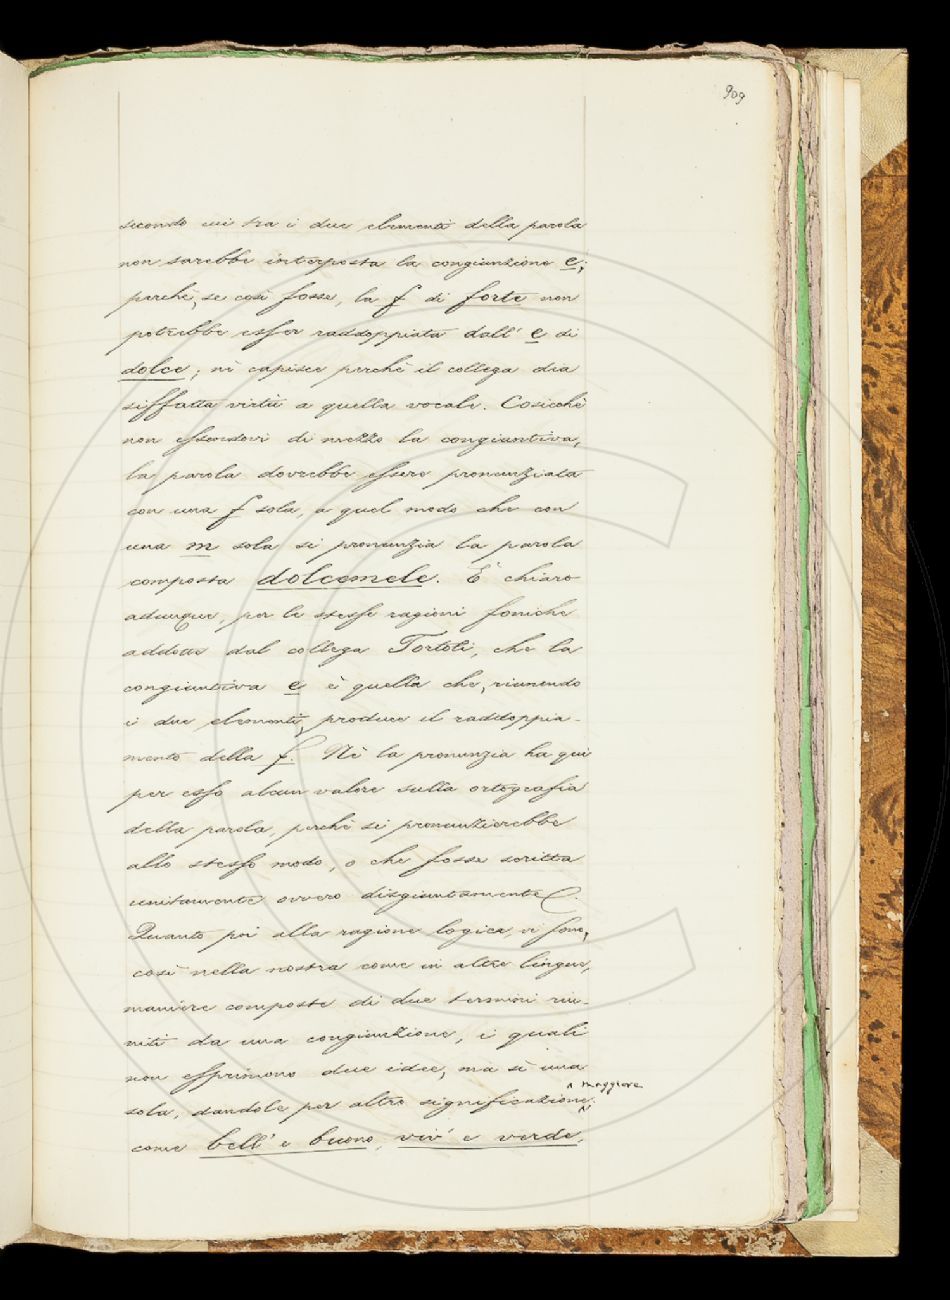 909
secondo cui tra i due elementi della parola
non sarebbe interposta la congiunzione e;
perchè, se così fosse, la f di forte non
potrebbe esser raddoppiata dall' e di
dolce; nè capisce perchè il collega dia
siffatta virtù a quella vocale. Cosicchè
non essendovi di mezzo la congiuntiva,
la parola dovrebbe essere pronunziata
con una f sola, a quel modo che con
una m sola si pronunzia la parola
composta dolcemele. È chiaro
adunque, per le stesse ragioni foniche
addotte dal collega Tortoli, che la
congiuntiva e è quella che, riunendo
i due elementi, produce il raddoppia-
mento della f. Nè la pronunzia ha qui
per esso alcun valore sulla ortografia
della parola, perchè si pronunzierebbe
allo stesso modo, o che fosse scritta
unitamente ovvero disgiuntamente.
Quanto poi alla ragione logica, vi sono,
così nella nostra come in altre lingue,
maniere composte di due termini riu-
niti da una congiunzione, i quali
non esprimono due idee, ma sì una
^ maggiore
sola, dandole per altro significazione.
come bell' e buono, viv' e verde,